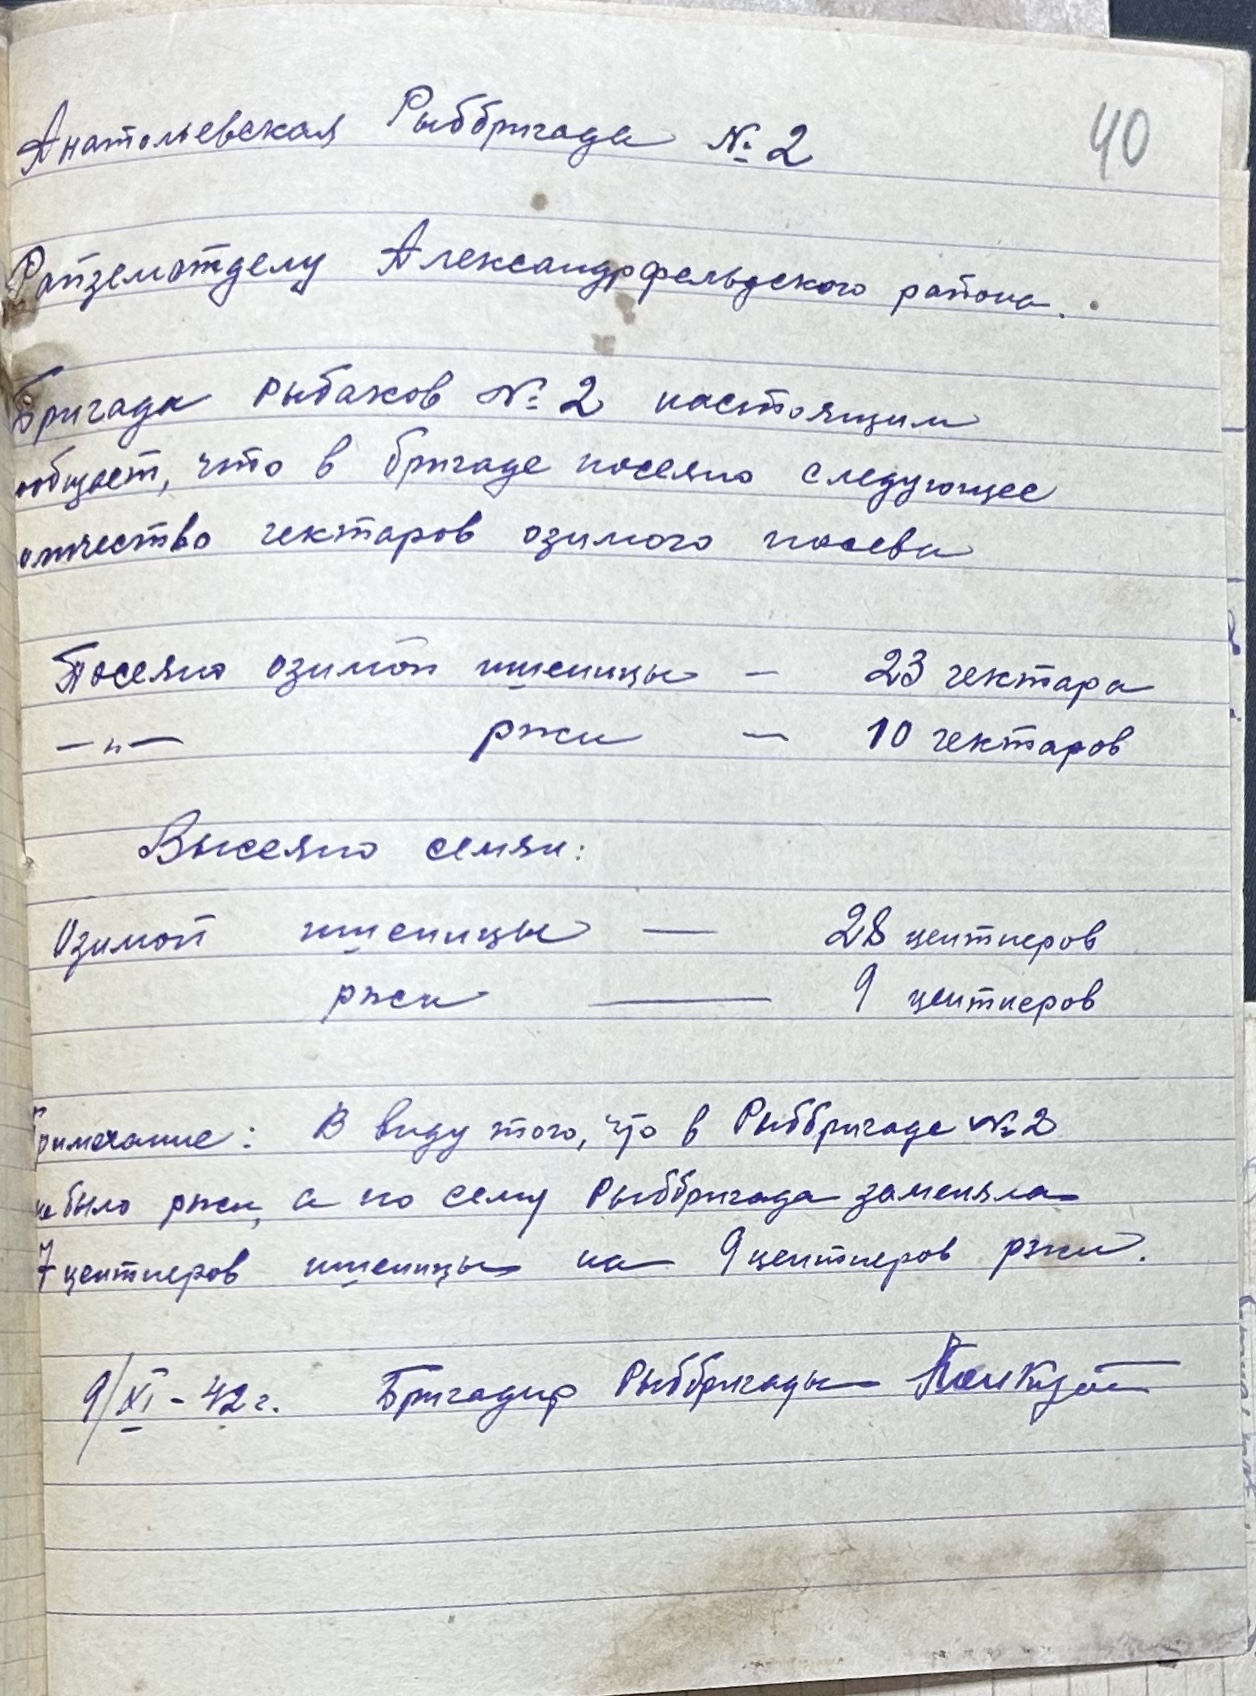 40
Анатольевская Рыббригада № 2
Райземотделу Александрфельдского района.
Бригада рыбаков № 2 настоящим
сообщает, что в бригаде посеяно следующее
количество гектаров озимого посева
Посеяно озимой пшеницы – 23 гектара
—"— ржи – 10 гектаров
Высеяно семян:
Озимой пшеницы — 28 центнеров
ржи — 9 центнеров
Примечание: В виду того, что в Рыббригаде № 2
не было ржи, а по сему Рыббригада заменяла
7 центнеров пшеницы на 9 центнеров ржи.
9/XI – 42 г. Бригадир Рыббригады